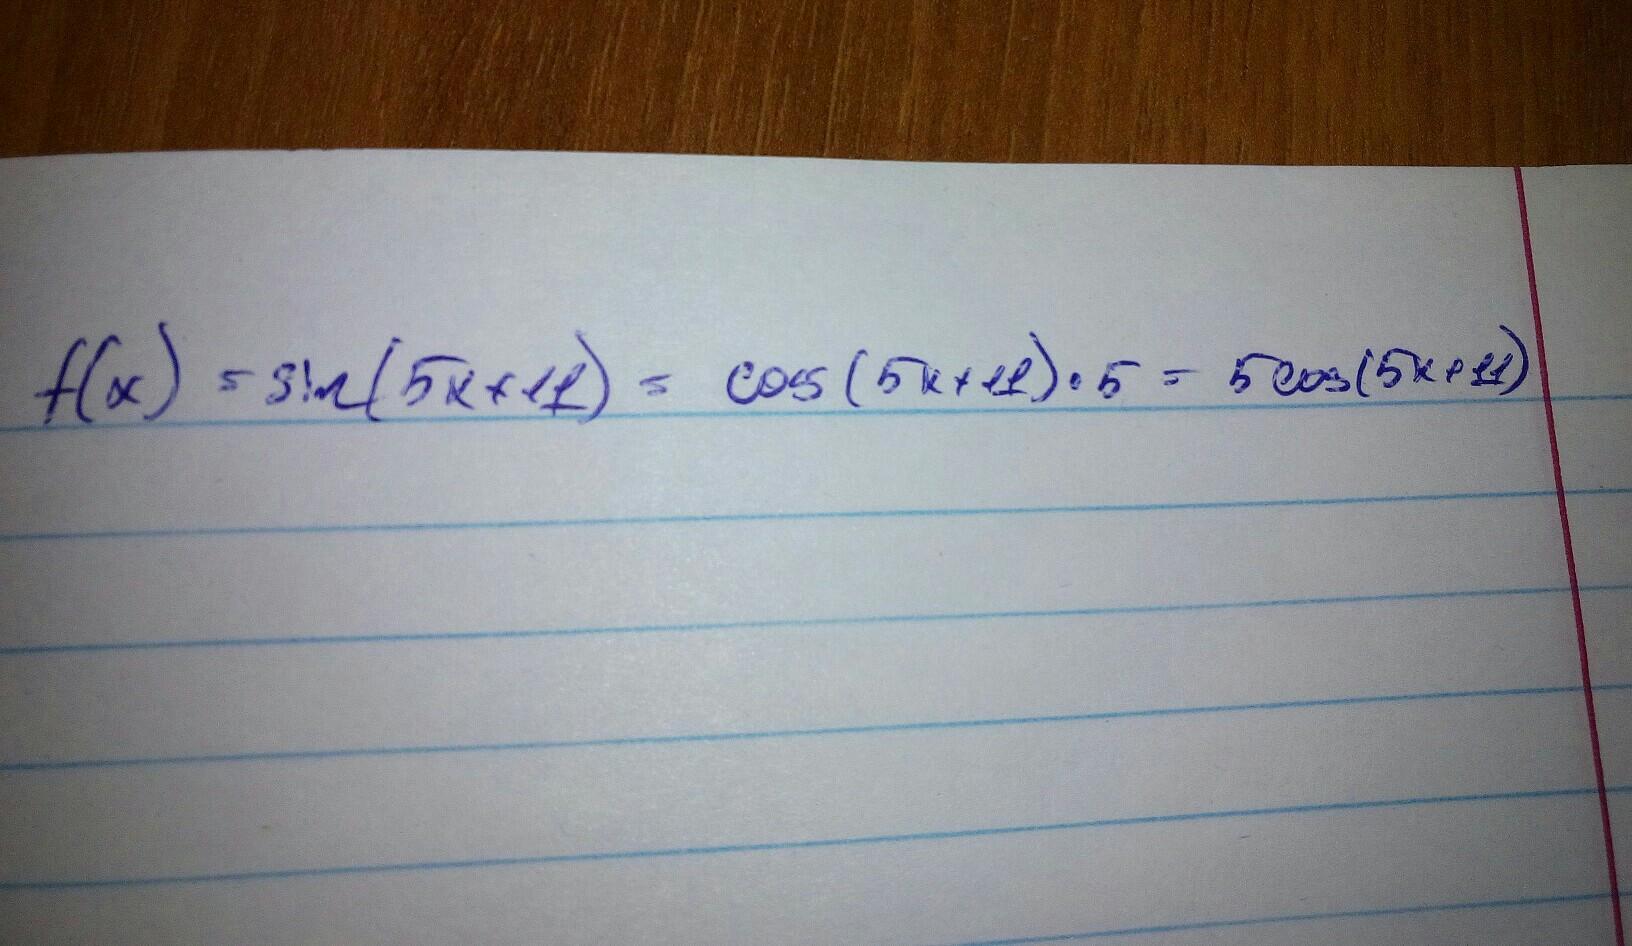 f(x) = sin(5x+11) = cos(5x+11)·5 = 5cos(5x+11)